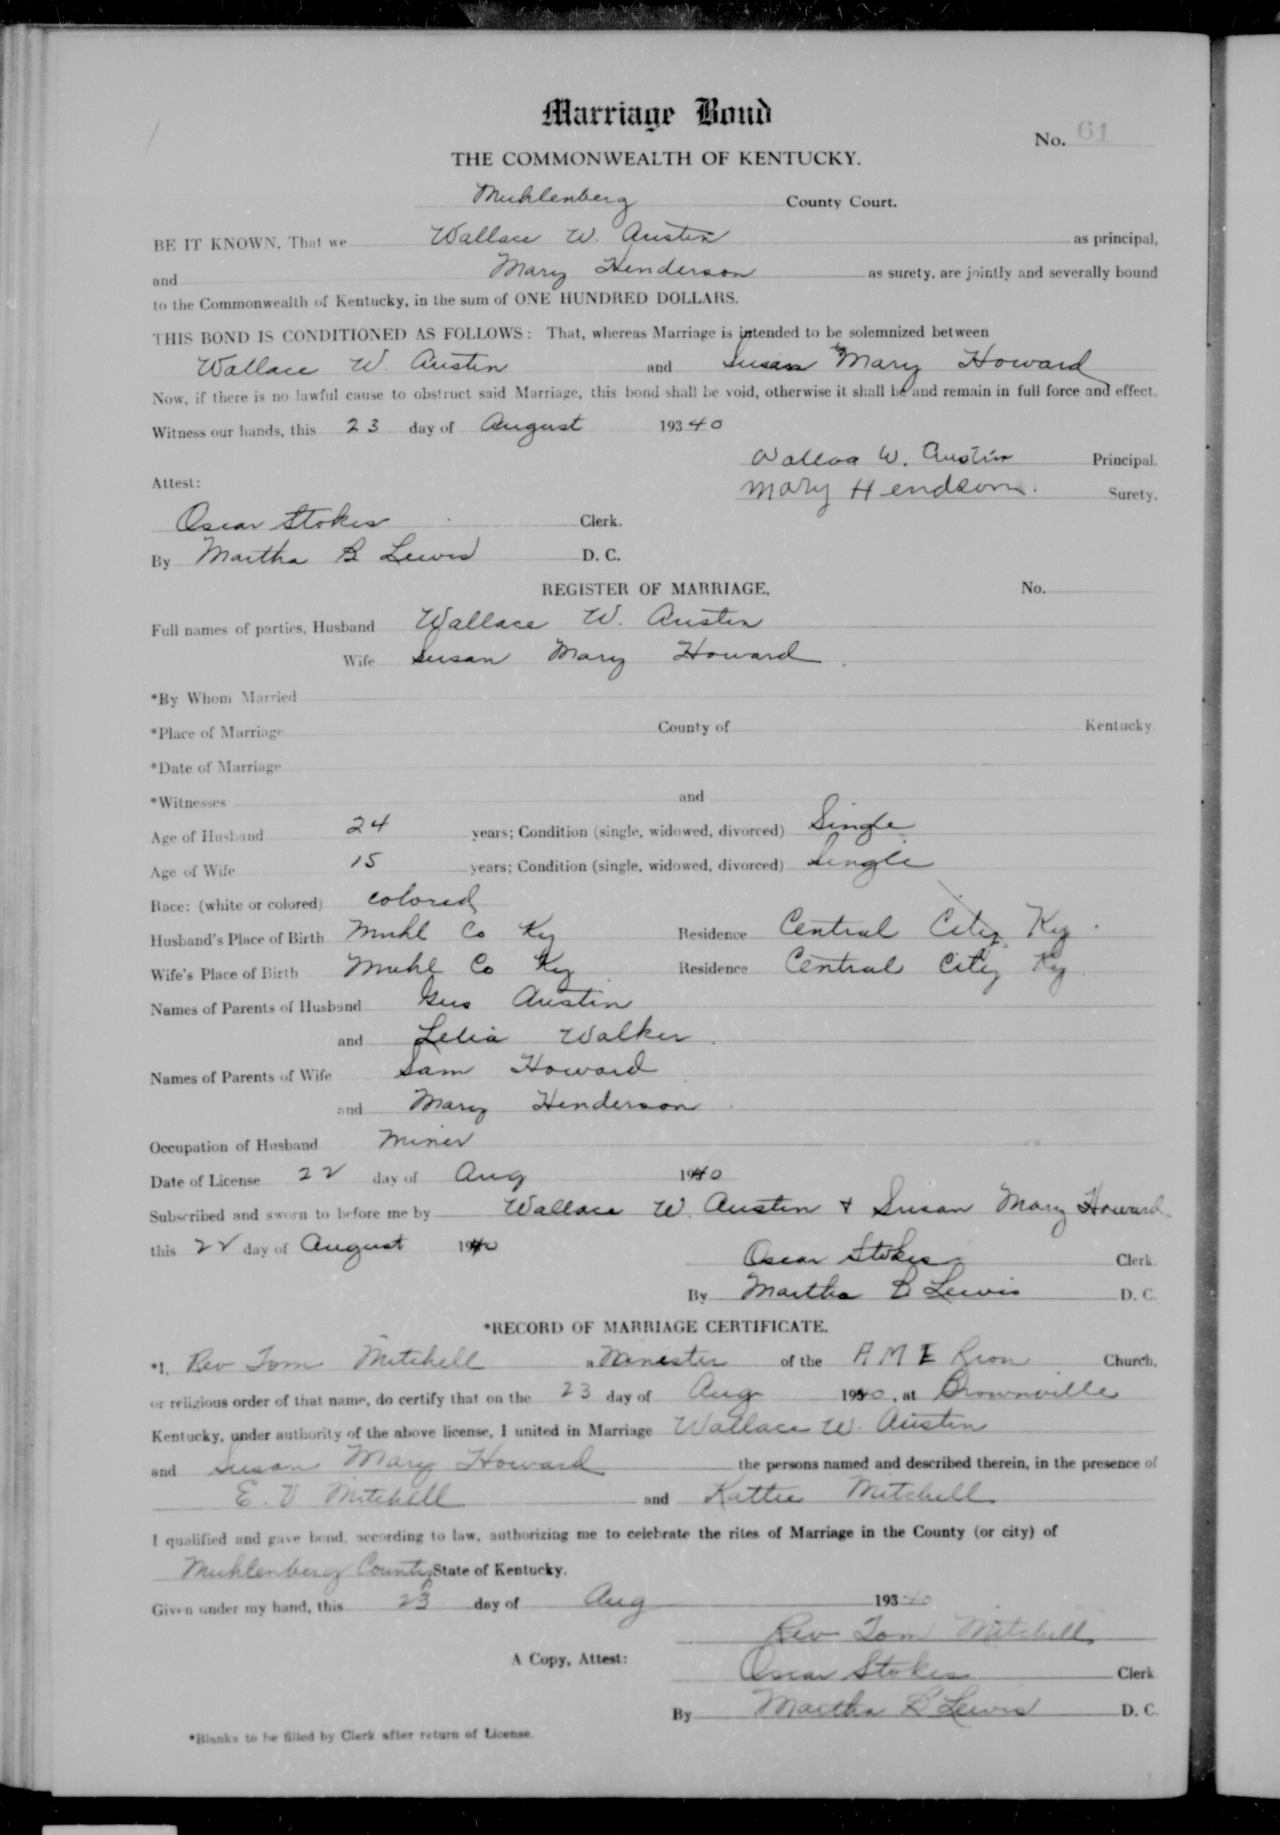 Marriage Bond
No. 61
THE COMMONWEALTH OF KENTUCKY.
Muhlenberg County Court.
BE IT KNOWN, That we Wallace W. Austin as principal,
and Mary Henderson as surety, are jointly and severally bound
to the Commonwealth of Kentucky, in the sum of ONE HUNDRED DOLLARS.
THIS BOND IS CONDITIONED AS FOLLOWS: That, whereas Marriage is intended to be solemnized between
Wallace W. Austin and Susan Mary Howard
Now, if there is no lawful cause to obstruct said Marriage, this bond shall be void, otherwise it shall be and remain in full force and effect.
Witness our hands, this 23 day of August 19340
W. Austin Principal.
Attest: Mary Hendson. Surety.
Oscar Stokes Clerk.
By Martha B Lewis D. C.
REGISTER OF MARRIAGE, No.
Full names of parties, Husband Wallace W. Austin
Wife Susan Mary Howard.
*By Whom Married
*Place of Marriage County of Kentucky
*Date of Marriage
*Witnesses and
Age of Husband 24 years; Condition (single, widowed, divorced) Single
Age of Wife 15 years; Condition (single, widowed, divorced) Single
Race: (white or colored) colored
Husband's Place of Birth Muhl Co Ky Residence Central City Ky.
Wife's Place of Birth Muhl Co Ky Residence Central City Ky
Names of Parents of Husband Gus Austin
and Lelia Walker.
Names of Parents of Wife Sam Howard
and Mary Henderson.
Occupation of Husband Miner
Date of License 22 day of Aug 1940
Subscribed and sworn to before me by Wallace W. Austin & Susan Mary Howard
this 22 day of August 1940
Oscar Stokes Clerk.
By Martha B Lewis D. C.
*RECORD OF MARRIAGE CERTIFICATE.
*I, Rev Tom Mitchell a Minester of the A M E Church,
or religious order of that name, do certify that on the 23 day of Aug 1940, at Brownville
Kentucky, under authority of the above license, I united in Marriage Wallace W. Austin
and Susan Mary Howard the persons named and described therein, in the presence of
E. V Mitchell and Kattie Mitchell.
I qualified and gave bond, according to law, authorizing me to celebrate the rites of Marriage in the County (or city) of
Muhlenberg County State of Kentucky.
Given under my hand, this 23 day of Aug 19340
Rev Tom Mitchell
A Copy, Attest: Oscar Stokes Clerk
By Martha B Lewis D. C.
*Blanks to be filled by Clerk after return of License.